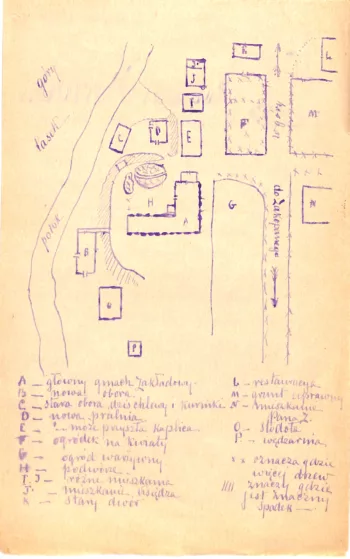 góry
lasek
potok
do Zakopanego
A
B
C
D
E
F
J
K
G
H
L
M
N
O
P
A — główny gmach zakładowy
B — nowa obora
C — stara obora dziś chlewy i kurniki
D — nowa pralnia
E — "... może przyszła kaplica
F — ogródek na kwiaty
G — ogród warzywny
H — podwórze
I J — różne mieszkania
J — mieszkanie księdza
K — stary dwór
L — restauracja
M — grunt uprawny
N — mieszkanie
Pana Z.
O — stodoła
P — wędzarnia
x x oznacza gdzie
więcej drzew
//// znaczy gdzie
jest znaczny
spadek —